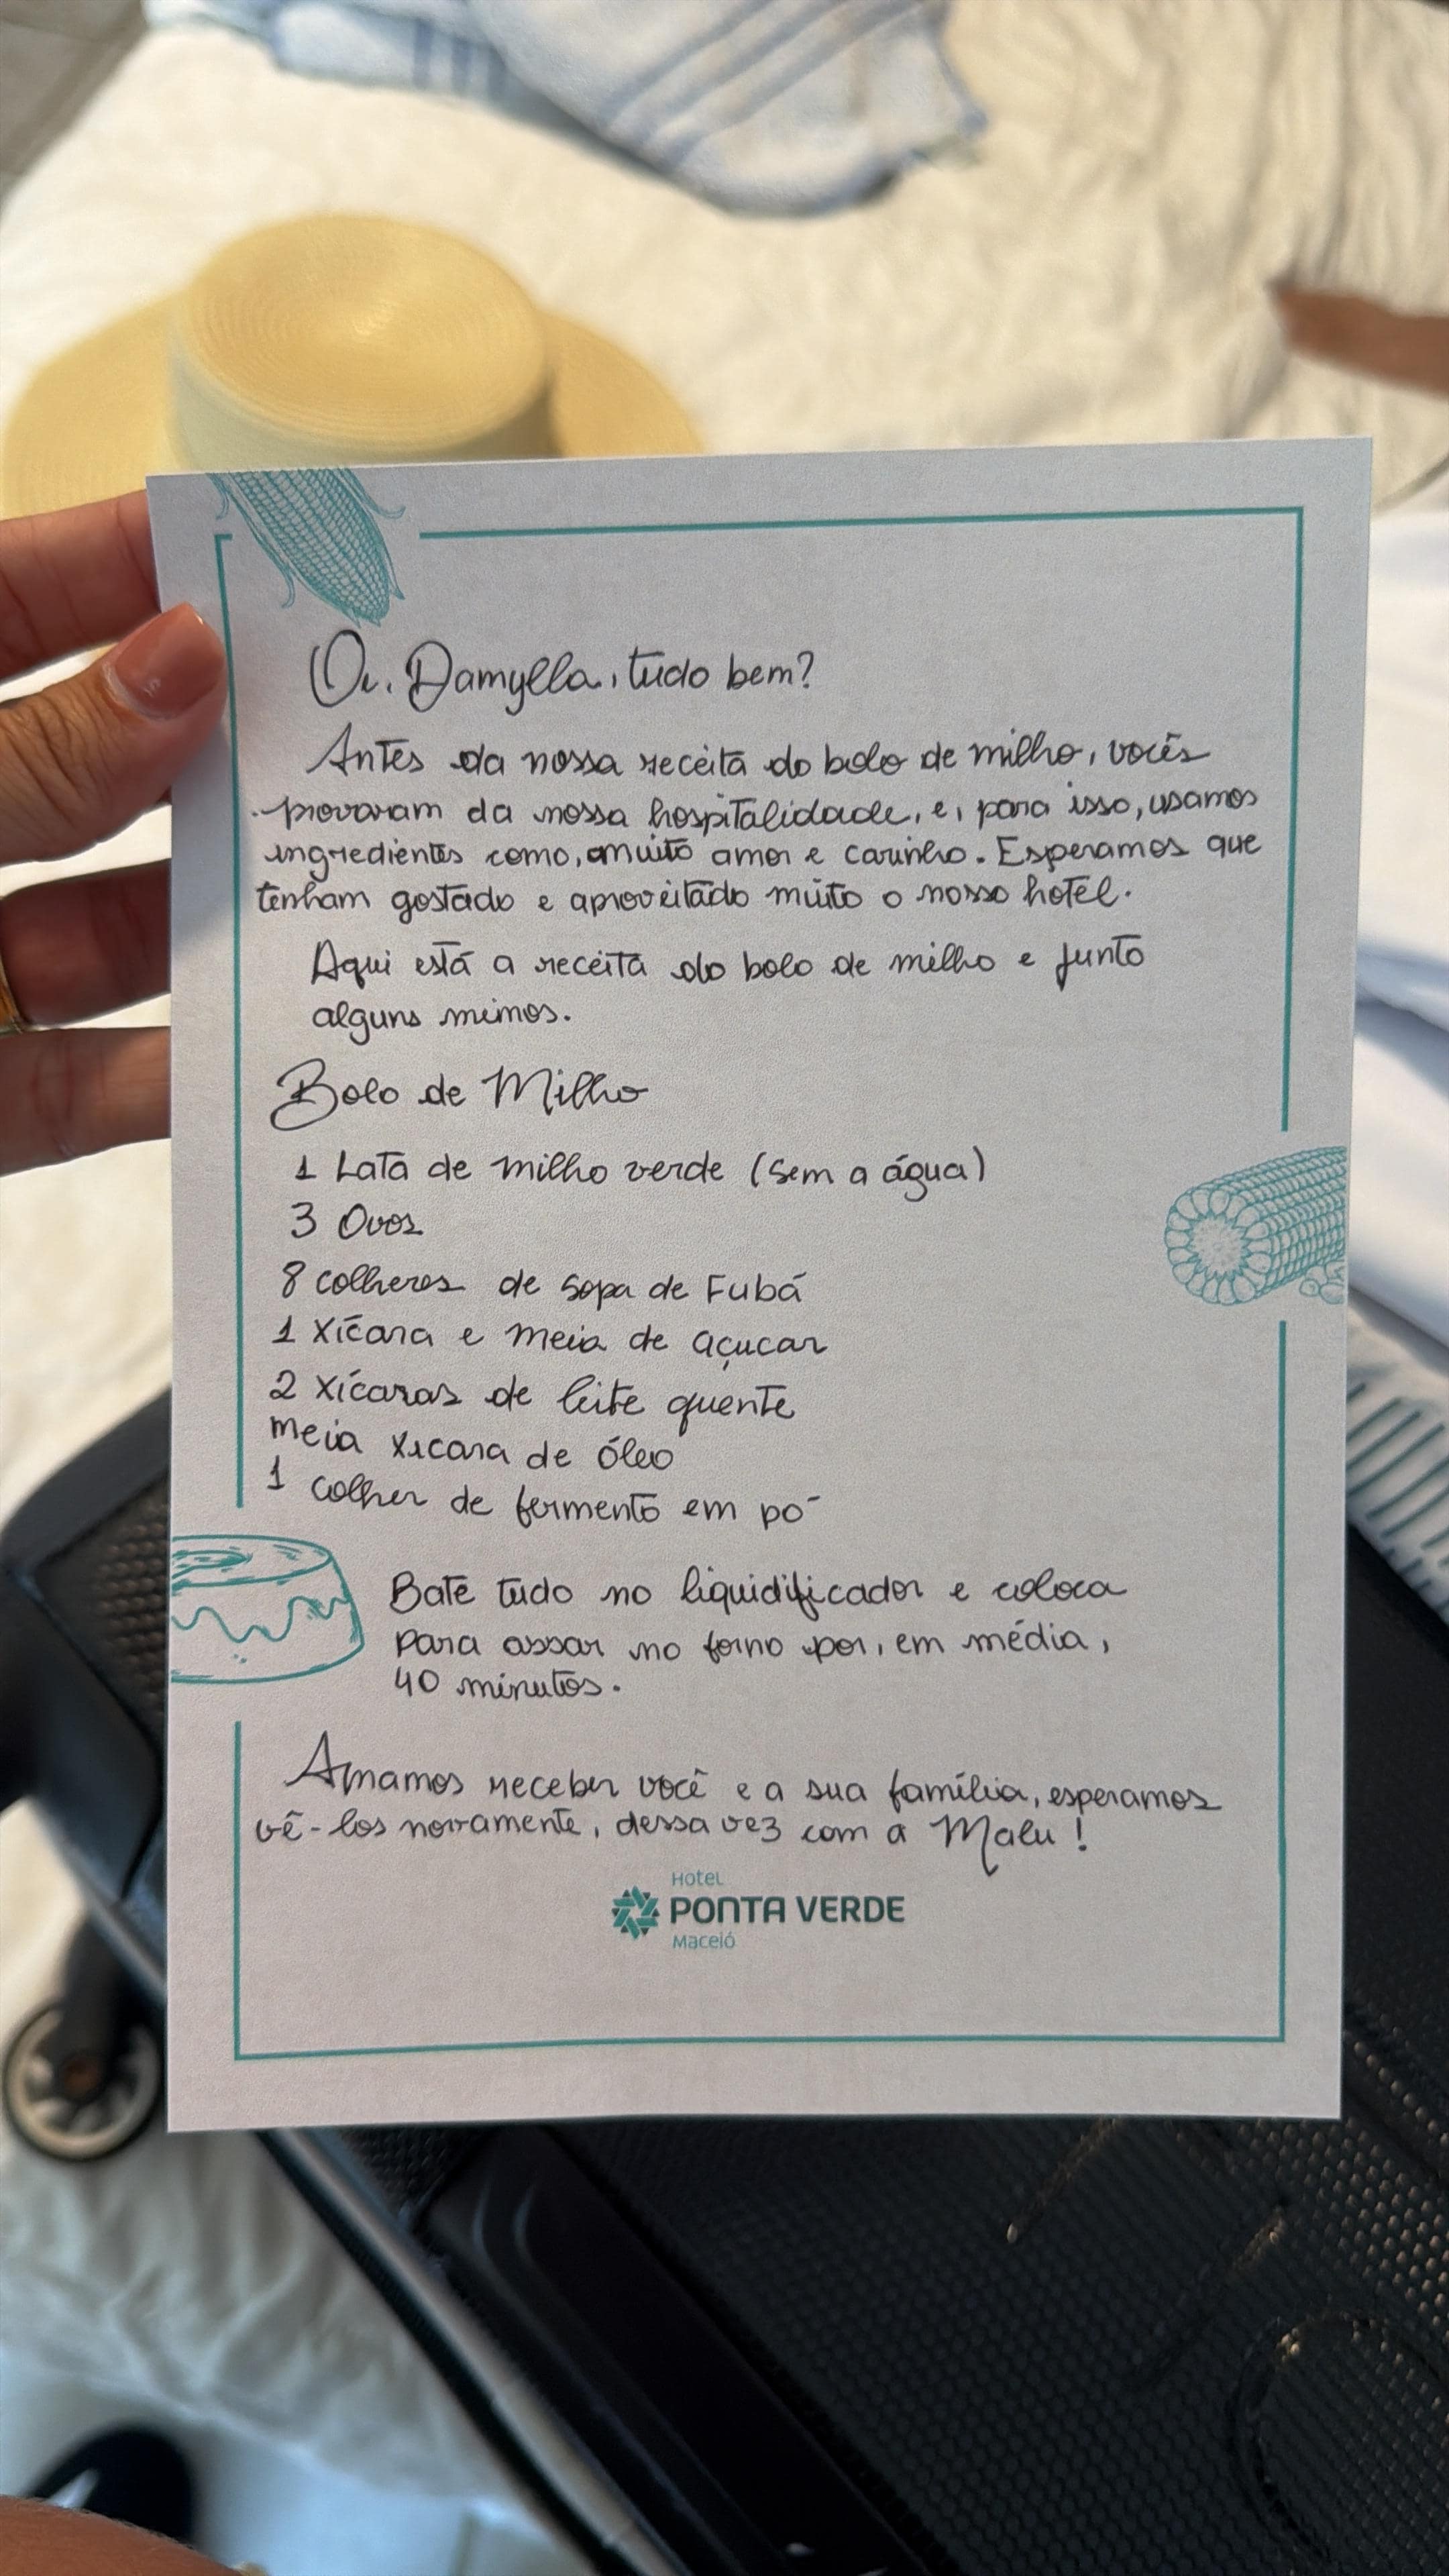 Oi, Damylla, tudo bem?
Antes da nossa receita do bolo de milho, vocês
provaram da nossa hospitalidade, e, para isso, usamos
ingredientes como, muito amor e carinho. Esperamos que
tenham gostado e aproveitado muito o nosso hotel.
Aqui está a receita do bolo de milho e junto
alguns mimos.
Bolo de Milho
1 Lata de milho verde (sem a água)
3 Ovos
8 colheres de sopa de Fubá
1 xícara e meia de açucar
2 xícaras de leite quente
meia xicara de óleo
1 colher de fermento em pó
Bate tudo no liquidificador e coloca
para assar no forno por, em média,
40 minutos.
Amamos receber você e a sua família, esperamos
vê-los novamente, dessa vez com a Malu!
Hotel
PONTA VERDE
Maceió